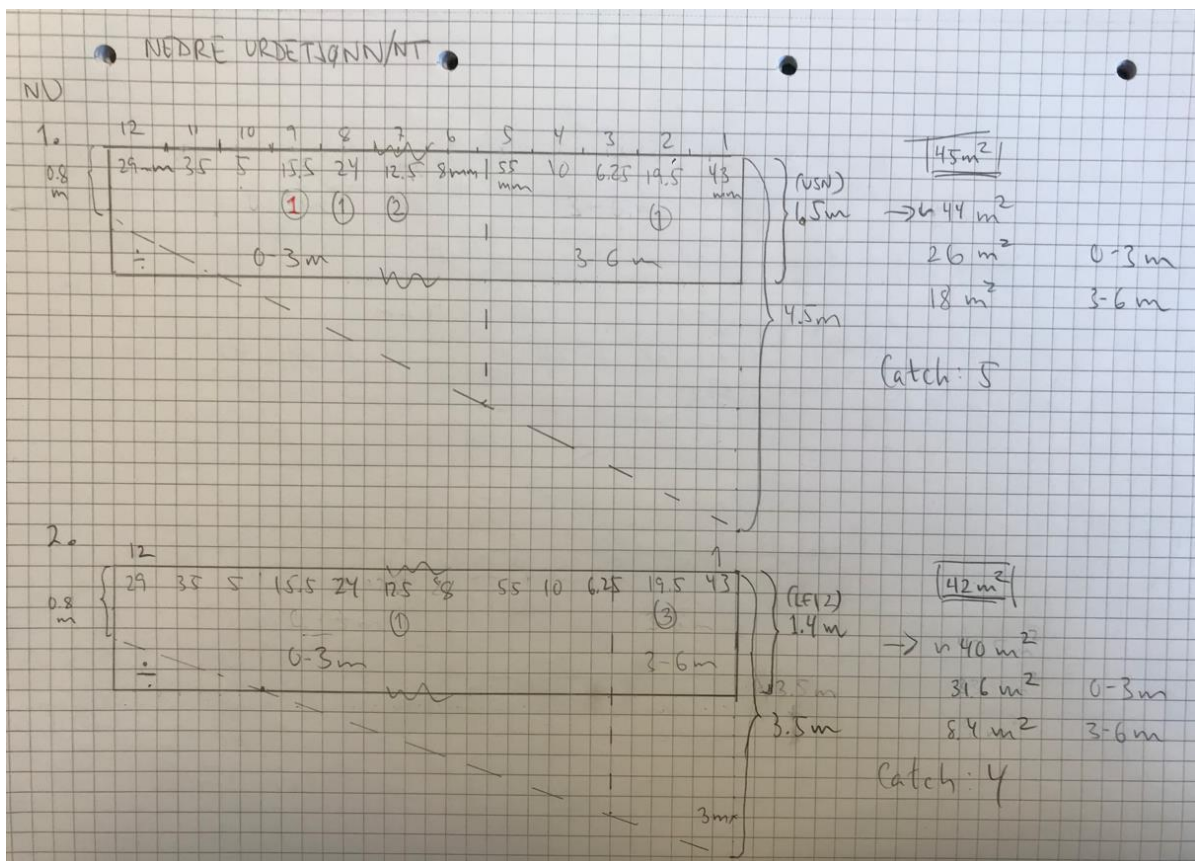 NEDRE URDETJØNN/NT
NU
1.
12 11 10 9 8 7 6 5 4 3 2 1
0.8 m
29mm 35 5 15.5 24 12.5 8mm 55 mm 10 6.25 19.5 43 mm
1 1 2 1
÷ 0-3m 3-6 m
(USN)
1.5m
4.5m
45m²
→ 44 m²
26 m² 0-3m
18 m² 3-6 m
Catch: 5
2.
12 1
0.8 m
29 35 5 15.5 24 12.5 8 55 10 6.25 19.5 43
1 3
÷ 0-3m 3-6m
1.4m
3.5m
3.5m
42m²
→ 40 m²
31.6 m² 0-3m
8.4 m² 3-6m
Catch: 4